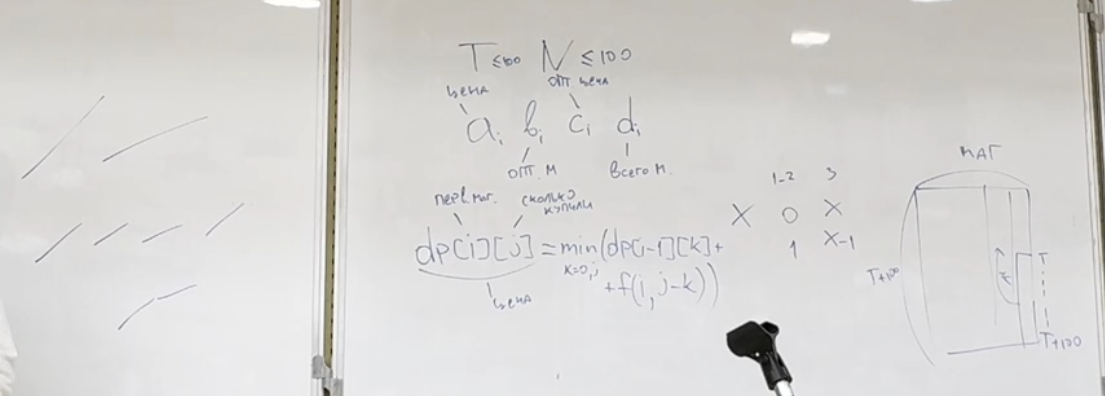 T≤100 N≤100
цена опт цена
a_i b_i c_i d_i
опт. м всего м.
перв. маг. сколько купили
dp[i][j] = min(dp[i-1][k]+
k=0,j
+f(i, j-k))
цена
1-2 3
X 0 X
1 X-1
маг
T+100
T
T+100